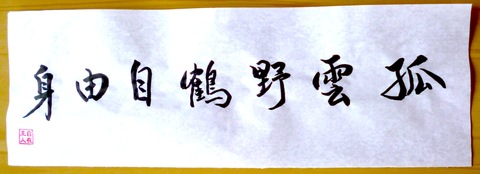 孤雲野鶴自由身